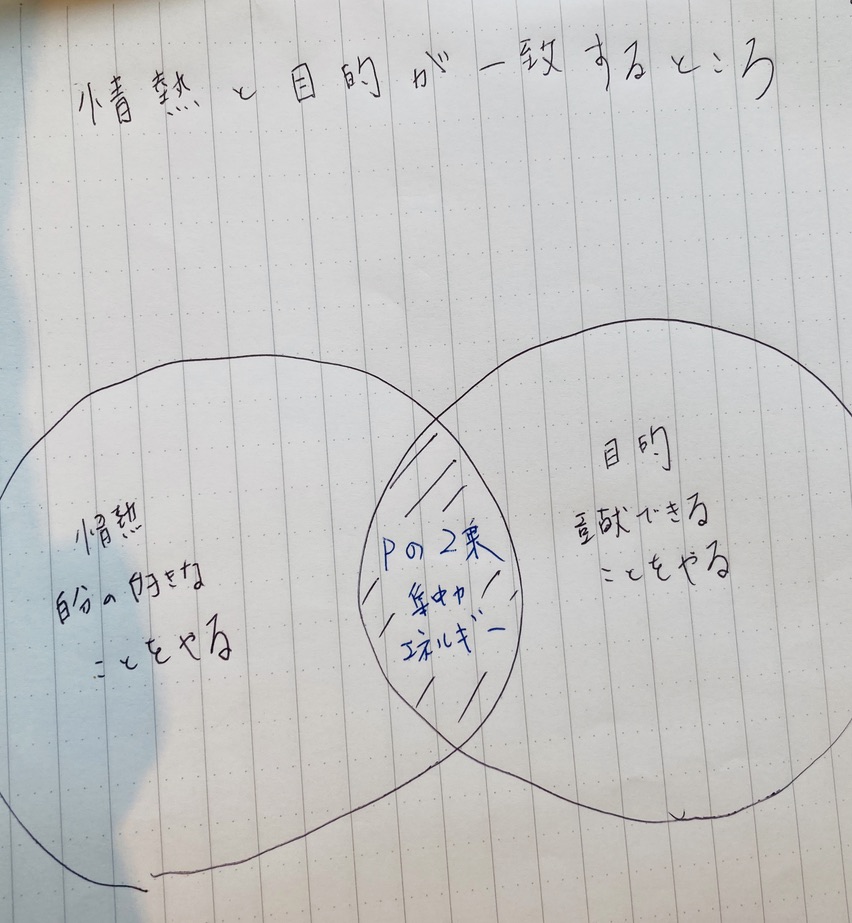 情熱と目的が一致するところ
情熱
自分の好きな
ことをやる
Pの2乗
集中力
エネルギー
目的
貢献できる
ことをやる